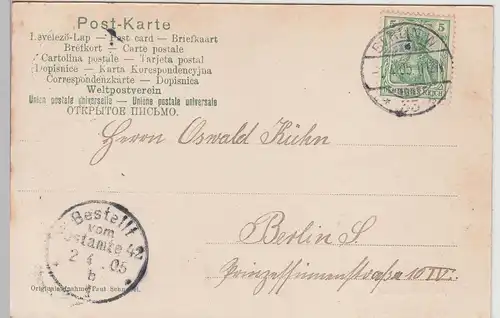 Post-Karte
Levelező-Lap — Post card — Briefkaart
Brefkort — Carte postale
Cartolina postale — Tarjeta postal
Dopisnice — Karta Korespondencyjna
Correspondenzkarte — Dopisnica
Weltpostverein
Union postale universelle — Unione postale universale
ОТКРЫТОЕ ПИСЬМО.
5 5
BERLIN
Herrn Oswald Kühn
Bestellt
vom
Postamte 42
2 4 05
b
Berlin S.
Prinzessinnenstraße 10 IV.
Originalaufnahme Paul